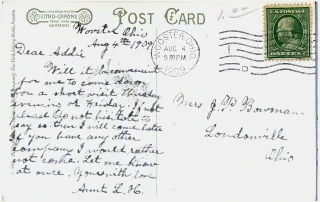 LITHO-CHROME
GERMANY
POST CARD
Wooster Ohio
Aug 4th 1909
Dear Addie
Will it be convenient
for me to come down
for a short visit Thursday
evening or Friday. If not
please do not hesitate to
say so then I will come later
If you have any other
company I would rather
not come. Let me know
at once. Yours with love
Aunt L. H.
WOOSTER, OHIO
AUG 4
5:30 PM
1909
U.S. POSTAGE
ONE CENT
Mrs J. P. Bowman
Loudonville
Ohio